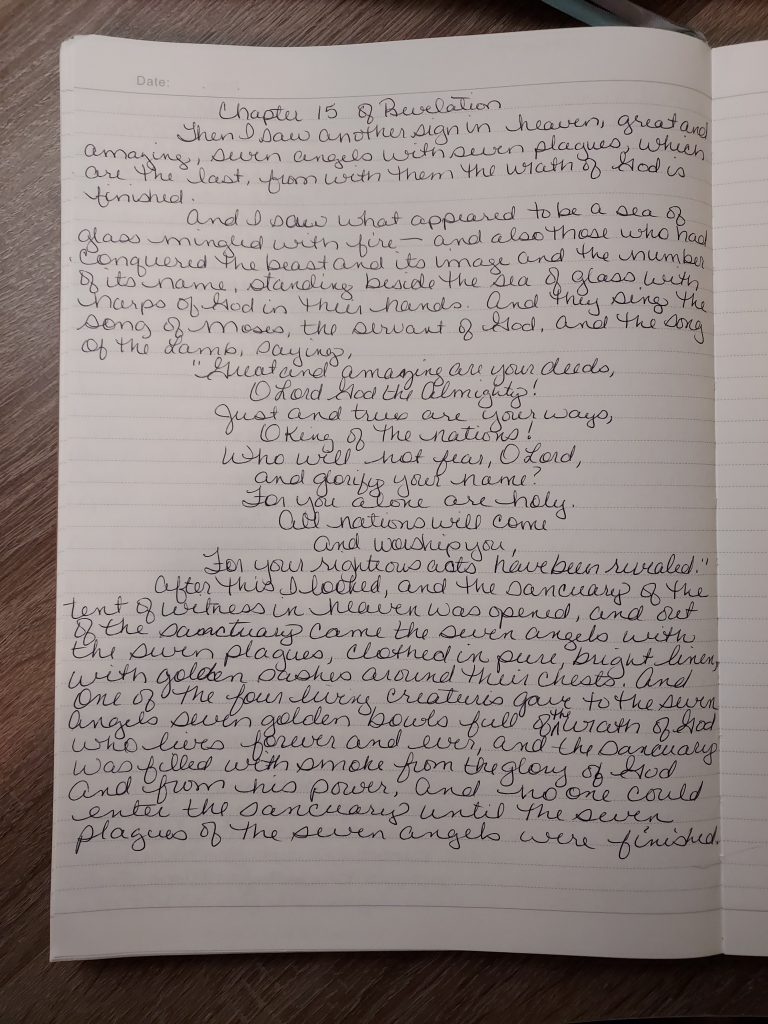 Date:
Chapter 15 of Revelation
Then I saw another sign in heaven, great and
amazing, seven angels with seven plagues, which
are the last, from with them the wrath of God is
finished.
And I saw what appeared to be a sea of
glass mingled with fire — and also those who had
conquered the beast and its image and the number
of its name, standing beside the sea of glass with
harps of God in their hands. And they sing the
song of Moses, the servant of God, and the song
of the Lamb, saying,
"Great and amazing are your deeds,
O Lord God the Almighty!
Just and true are your ways,
O King of the nations!
Who will not fear, O Lord,
and glorify your name?
For you alone are holy.
All nations will come
and worship you,
For your righteous acts have been revealed."
After this I looked, and the sancuary of the
tent of witness in heaven was opened, and out
of the sanctuary came the seven angels with
the seven plagues, clothed in pure, bright linen,
with golden sashes around their chests. And
one of the four living creatures gave to the seven
angels seven golden bowls full of the wrath of God
who lives forever and ever, and the sancuary
was filled with smoke from the glory of God
and from his power, and no one could
enter the sancuary until the seven
plagues of the seven angels were finished.